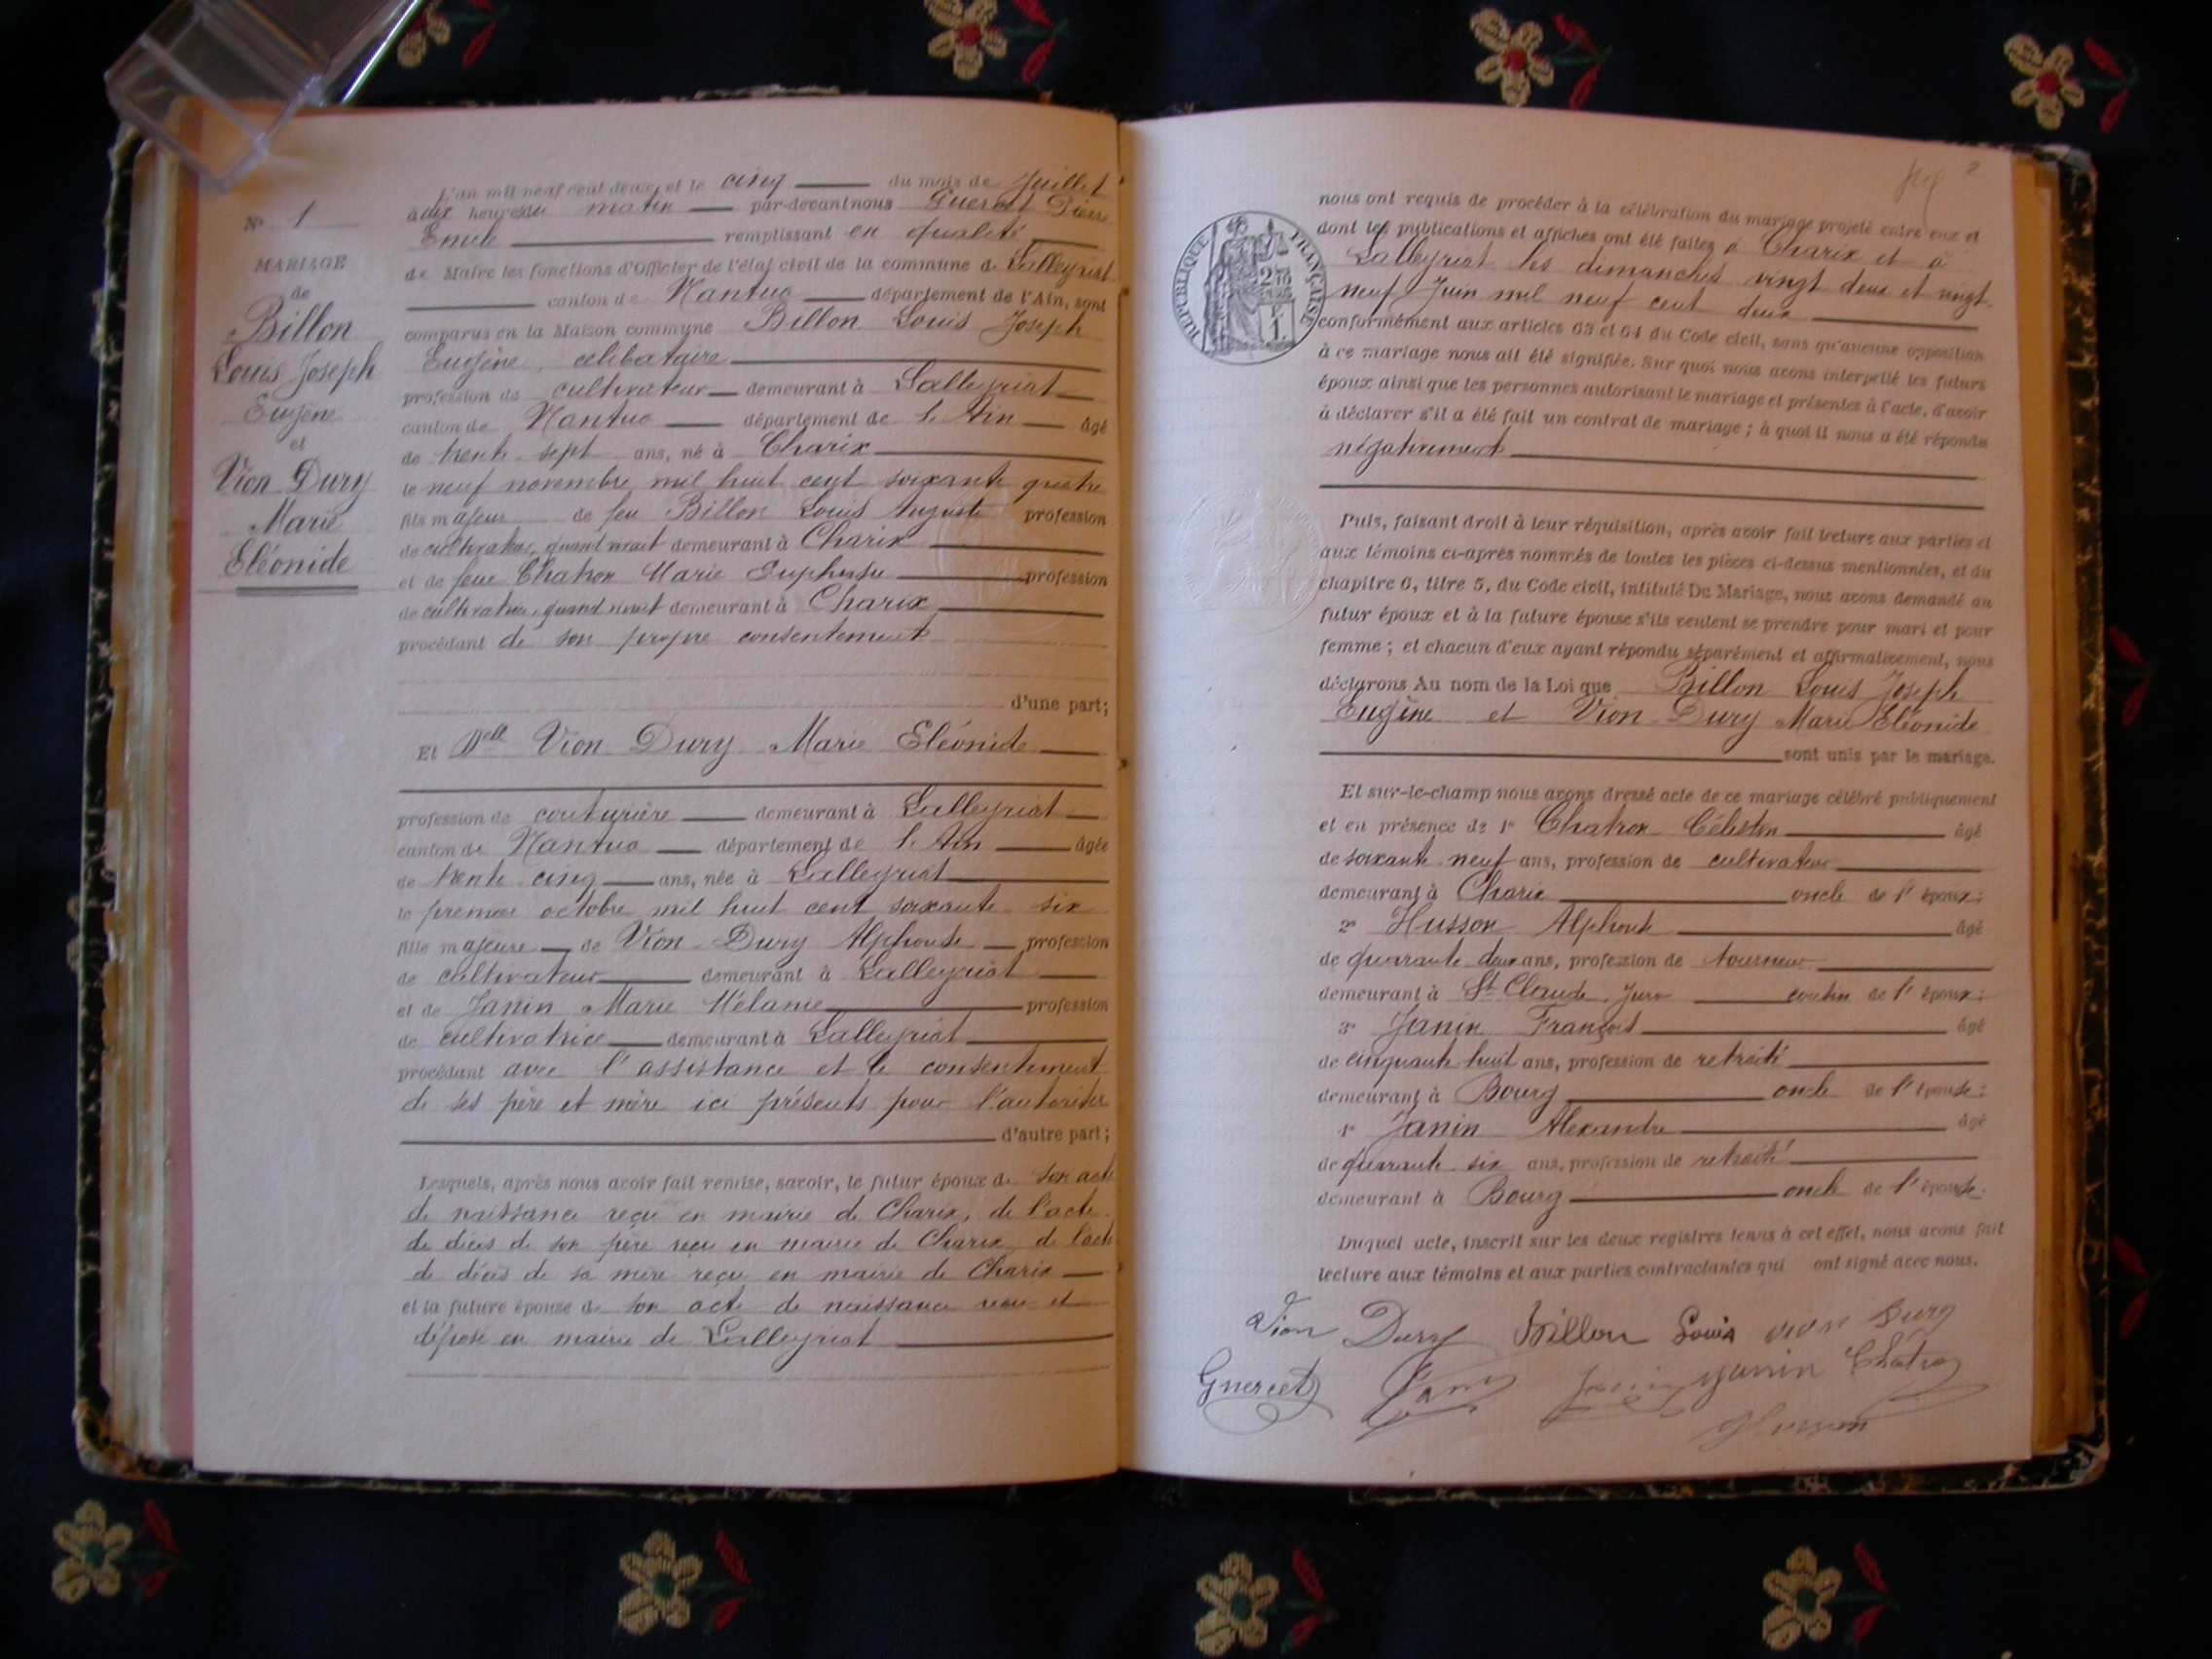 L'an mil neuf cent deux, et le cinq du mois de Juillet
à dix heures du matin par-devant nous Guercet Pierre
Emile remplissant en qualité
de Maire les fonctions d'Officier de l'état civil de la commune de Lalleyriat
canton de Nantua département de l'Ain, sont
comparus en la Maison commune Billon Louis Joseph
Eugène, célibataire
profession de cultivateur demeurant à Lalleyriat
canton de Nantua département de l'Ain âgé
de trente-sept ans, né à Charix
le neuf novembre mil huit cent soixante quatre
fils majeur de feu Billon Louis Auguste profession
de cultivateur, quand vivait demeurant à Charix
et de feue Chatron Marie profession
de cultivatrice, quand vivait demeurant à Charix
procédant de son propre consentement
d'une part;
Et Delle Vion-Dury Marie Eléonide
profession de couturière demeurant à Lalleyriat
canton de Nantua département de l'Ain âgée
de trente-cinq ans, née à Lalleyriat
le premier octobre mil huit cent soixante-six
fille majeure de Vion-Dury Alphonse profession
de cultivateur demeurant à Lalleyriat
et de Janin Marie Mélanie profession
de cultivatrice demeurant à Lalleyriat
procédant avec l'assistance et le consentement
de ses père et mère ici présents pour l'autoriser
d'autre part;
Lesquels, après nous avoir fait remise, savoir, le futur époux de son acte
de naissance reçu en mairie de Charix, de l'acte
de décès de son père reçu en mairie de Charix, de l'acte
de décès de sa mère reçu en mairie de Charix
et la future épouse de son acte de naissance reçu et
déposé en mairie de Lalleyriat
N° 1
MARIAGE
de
Billon
Louis Joseph
Eugène
et
Vion-Dury
Marie
Eléonide
2
RÉPUBLIQUE FRANÇAISE
nous ont requis de procéder à la célébration du mariage projeté entre eux et
dont les publications et affiches ont été faites à Charix et à
Lalleyriat les dimanches vingt deux et vingt-
neuf Juin mil neuf cent deux
conformément aux articles 63 et 64 du Code civil, sans qu'aucune opposition
à ce mariage nous ait été signifiée. Sur quoi nous avons interpellé les futurs
époux ainsi que les personnes autorisant le mariage et présentes à l'acte, d'avoir
à déclarer s'il a été fait un contrat de mariage; à quoi il nous a été répondu
négativement
Puis, faisant droit à leur réquisition, après avoir fait lecture aux parties et
aux témoins ci-après nommés de toutes les pièces ci-dessus mentionnées, et du
chapitre 6, titre 5, du Code civil, intitulé Du Mariage, nous avons demandé au
futur époux et à la future épouse s'ils veulent se prendre pour mari et pour
femme; et chacun d'eux ayant répondu séparément et affirmativement, nous
déclarons Au nom de la Loi que Billon Louis Joseph
Eugène et Vion-Dury Marie Eléonide
sont unis par le mariage.
Et sur-le-champ nous avons dressé acte de ce mariage célébré publiquement
et en présence de 1° Chatron Célestin âgé
de soixante-neuf ans, profession de cultivateur
demeurant à Charix oncle de l'époux;
2° Husson Alphonse âgé
de quarante deux ans, profession de tourneur
demeurant à St Claude, Jura cousin de l'époux;
3° Janin François âgé
de cinquante huit ans, profession de retraité
demeurant à Bourg oncle de l'épouse;
4° Janin Alexandre âgé
de quarante-six ans, profession de retraité
demeurant à Bourg oncle de l'épouse.
Duquel acte, inscrit sur les deux registres tenus à cet effet, nous avons fait
lecture aux témoins et aux parties contractantes qui ont signé avec nous.
Vion Dury Billon Louis Vion Dury
Guercet Janin Janin Chatron
Husson